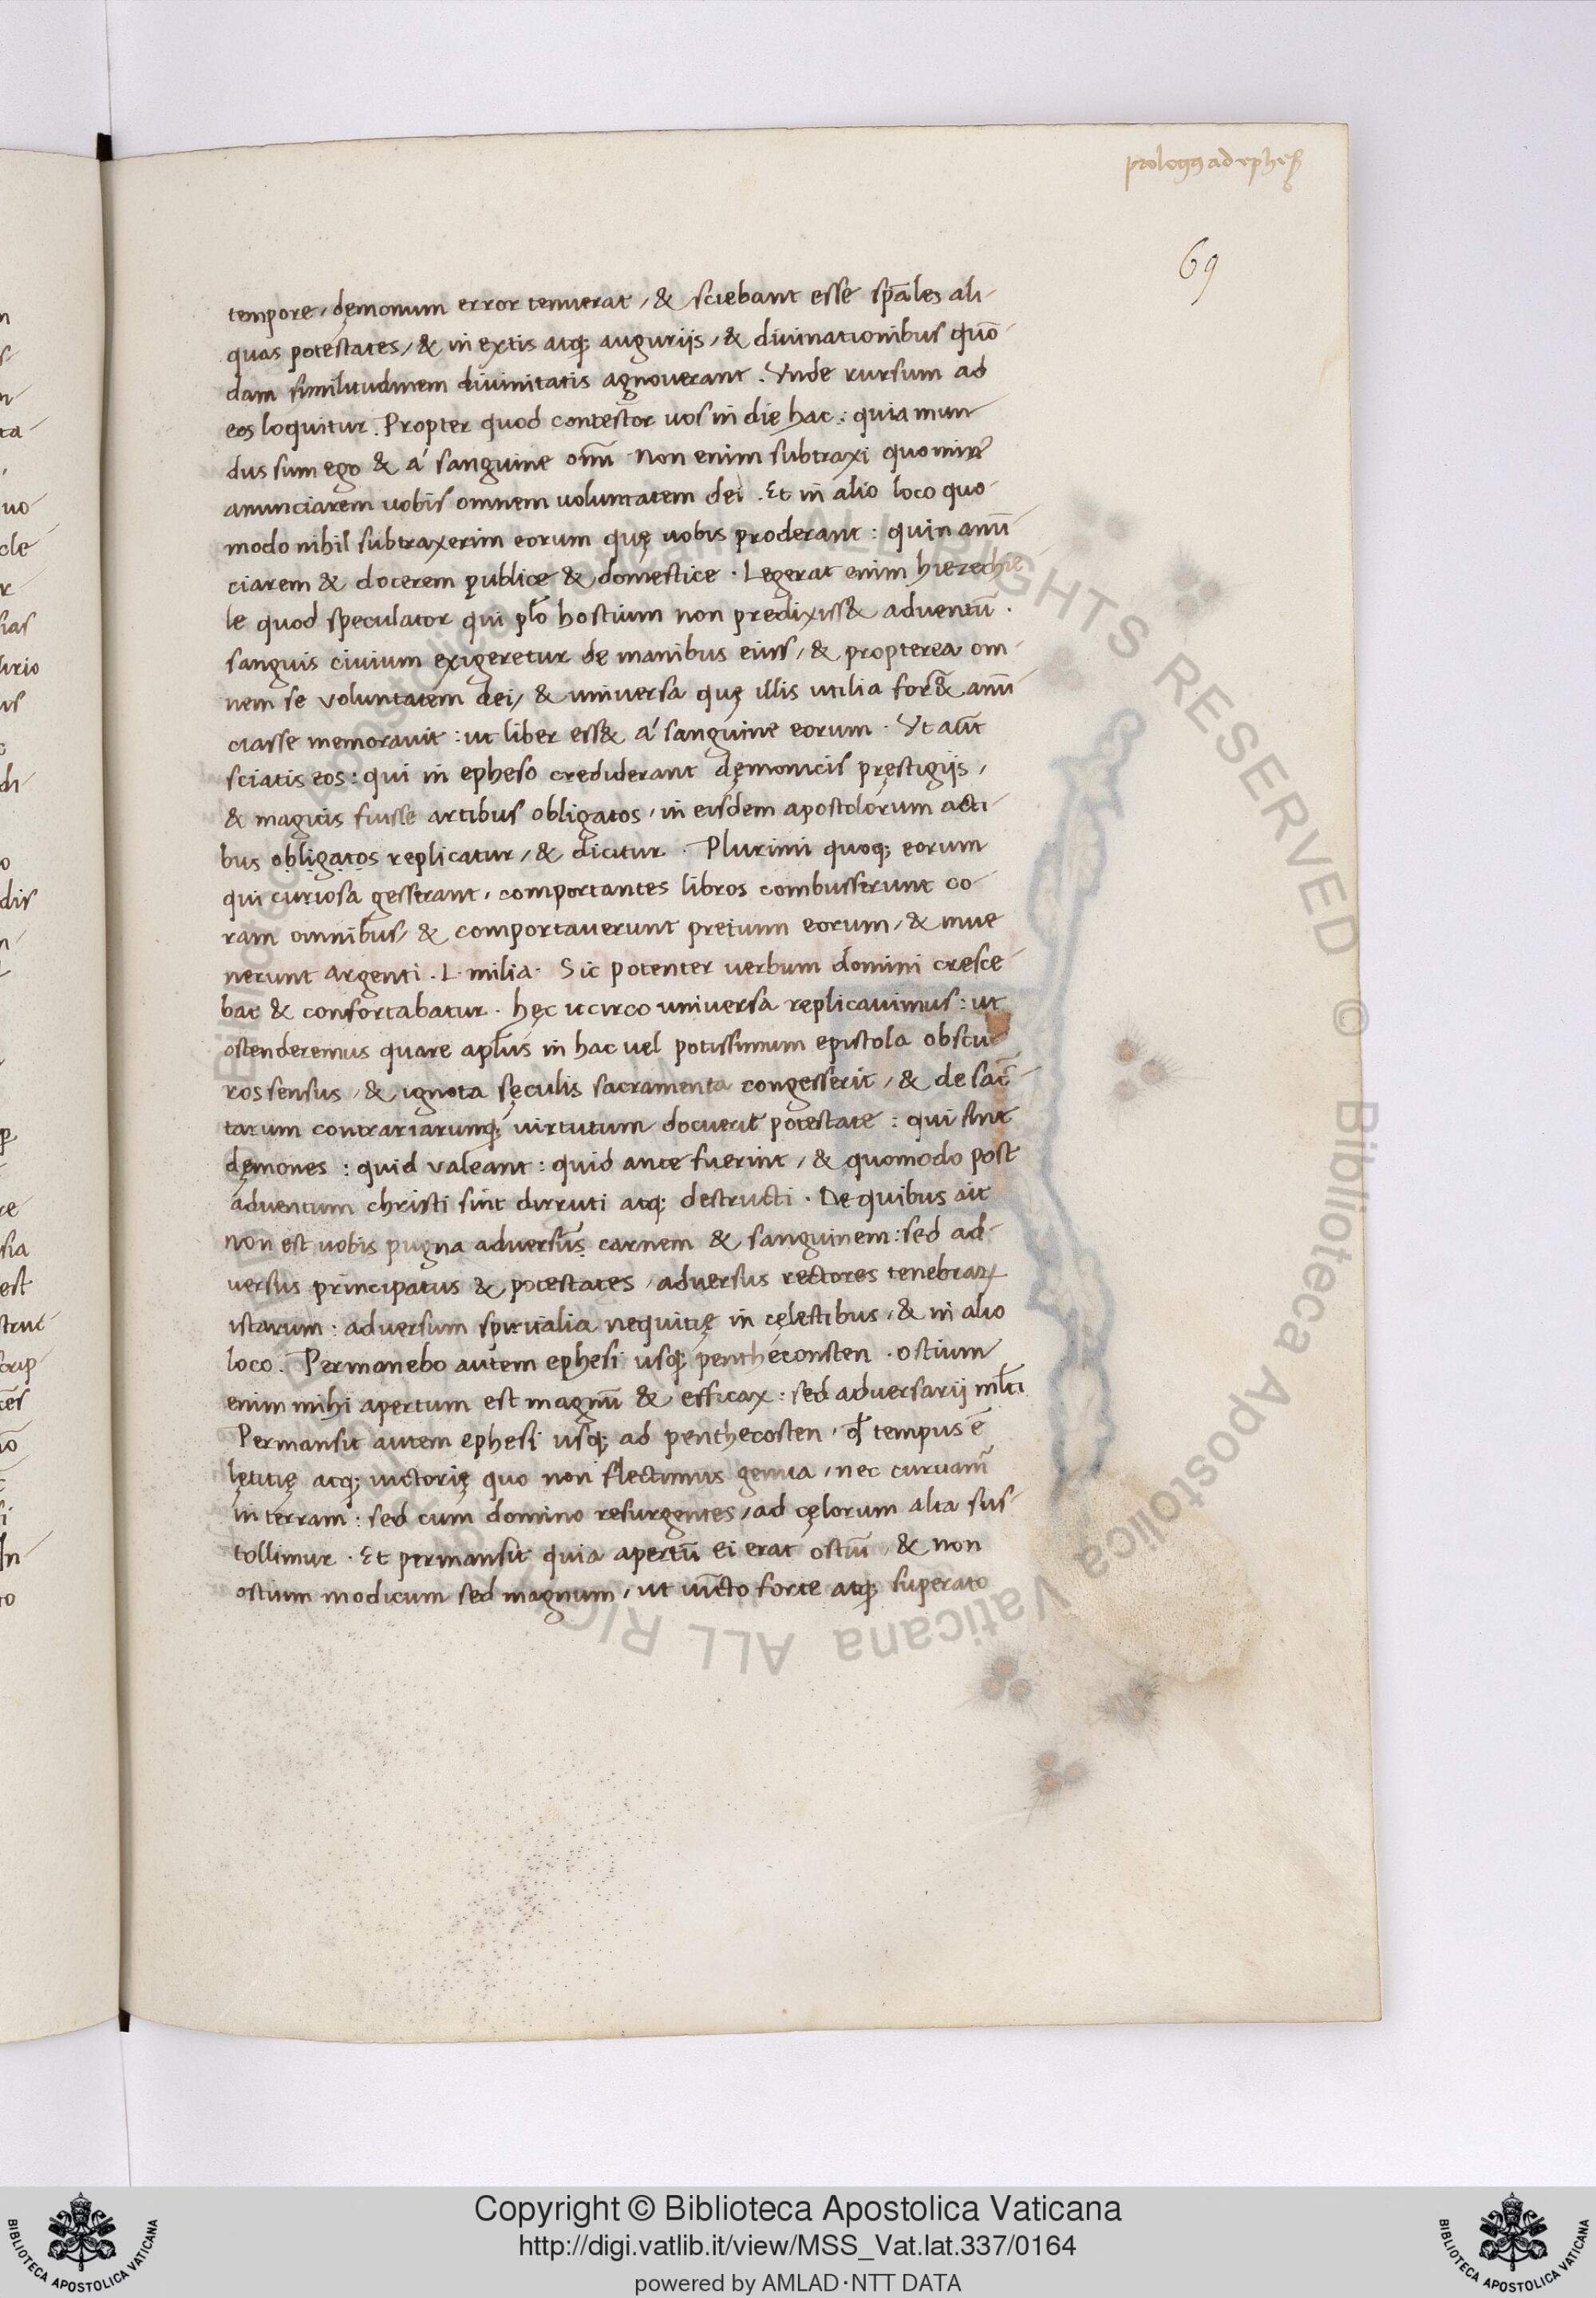 prologꝰ ad ephes
69
tempore, dęmonum error tenuerat, & sciebant esse sp̄ales ali-
quas potestates, & in extis atq; augurijs, & diuinationibus quō-
dam similitudinem diuinitatis agnouerant. Vnde rursum ad
eos loquitur. Propter quod contestor uos in die hac: quia mun-
dus sum ego & á sanguine om̄i non enim subtraxi quo minꝰ
anunciarem uobis omnem uoluntatem dei. Et in alio loco quo-
modo nihil subtraxerim eorum quę uobis proderant: quin anū-
ciarem & docerem publice & domestice. Legerat enim hiezechie-
le quod speculator qui pl̄o hostium non predixiss& aduentū.
sanguis ciuium exigeretur de manibus eius, & propterea om-
nem se voluntatem dei, & uniuersa quę illis utilia for& anū-
ciasse memorauit: ut liber ess& á sanguine eorum. Vt aūt
sciatis eos: qui in epheso crediderant dęmonicis pręstigijs,
& magicis fuisse artibus obligatos, in eisdem apostolorum acti-
bus obligatos replicatur, & dicitur. Plurimi quoq; eorum
qui curiosa gesserant, comportantes libros combusserunt co-
ram omnibus, & comportauerunt pretium eorum, & inue
nerunt argenti. L. milia. Sic potenter uerbum domini cresce-
bat & confortabatur. hęc itcirco uniuersa replicauimus: ut
ostenderemus quare apl̄us in hac uel potissimum epistola obscu-
ros sensus, & ignota sęculis sacramenta congesserit, & de sāc-
tarum contrariarumq; uirtutum docuerit potestate: qui sint
dęmones: quid valeant: quid ante fuerint, & quomodo post
aduentum christi sint dirruti atq; destructi. De quibus ait
non est uobis pugna aduersus carnem & sanguinem: sed ad-
uersus principatus & potestates, aduersus rectores tenebraꝝ
istarum: aduersum spiritalia nequitię in cęlestibus, & in alio
loco. Permanebo autem ephesi usq; pentheconsten. ostium
enim mihi apertum est magnū & efficax: sed aduersarij ml̄ti
Permansit autem ephesi usq; ad penthecosten, qđ tempus ē
lętitię atq; uictorię quo non flectimus genua, nec curuam̄
in terram: sed cum domino resurgentes, ad cęlorum alta sus-
tollimur. Et permansit quia apertū ei erat ostiū, & non
ostium modicum sed magnum, ut uīcto forte atq; superato
Copyright © Biblioteca Apostolica Vaticana
http://digi.vatlib.it/view/MSS_Vat.lat.337/0164
powered by AMLAD·NTT DATA